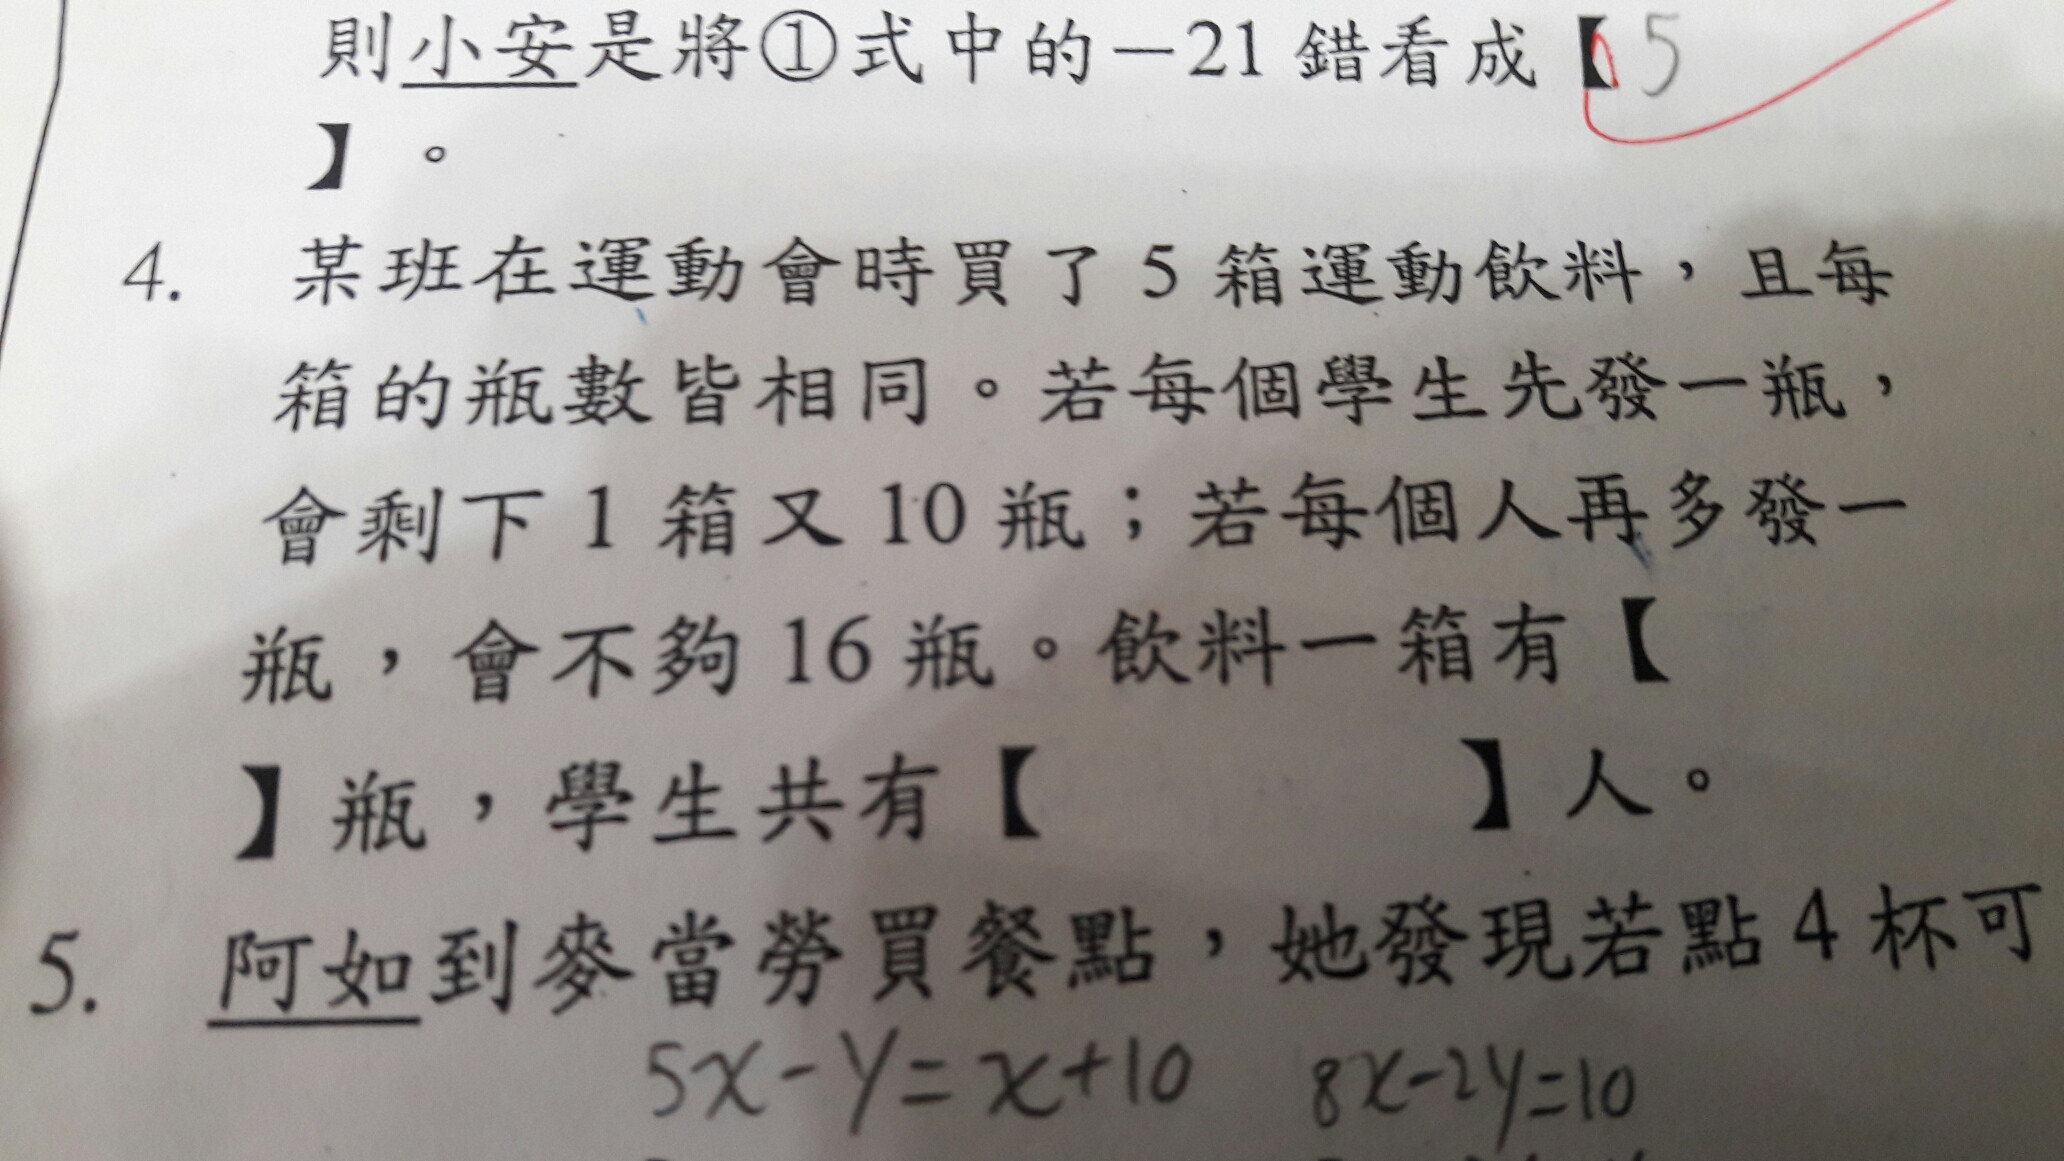 則小安是將①式中的－21 錯看成【 5
】。
4. 某班在運動會時買了 5 箱運動飲料，且每
箱的瓶數皆相同。若每個學生先發一瓶，
會剩下 1 箱又 10 瓶；若每個人再多發一
瓶，會不夠 16 瓶。飲料一箱有【
】瓶，學生共有【 】人。
5. 阿如到麥當勞買餐點，她發現若點 4 杯可
5x-y=x+10 8x-2y=10